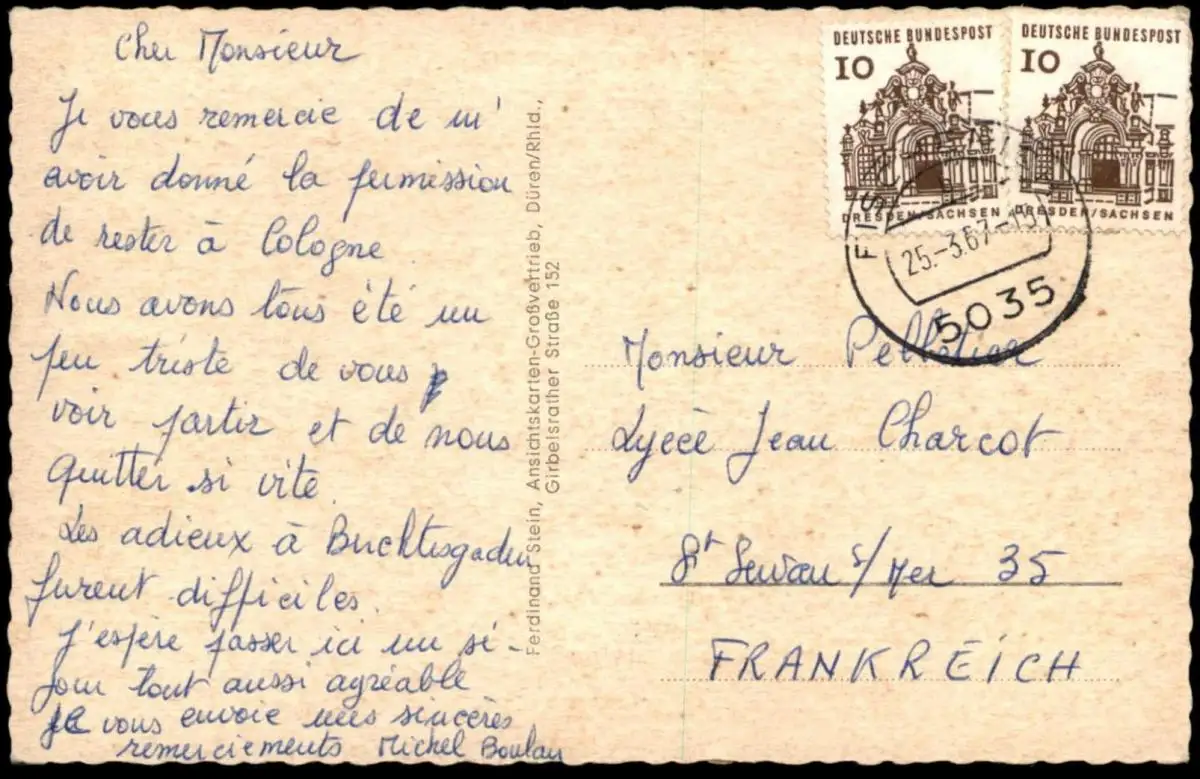 Cher Monsieur
Je vous remercie de m'
avoir donné la permission
de rester à Cologne.
Nous avons tous été un
peu triste de vous
voir partir et de nous
quitter si vite.
Les adieux à Buchtesgaden
furent difficiles.
J'espère passer ici un sé-
jour tout aussi agréable
Je vous envoie mes sincères
remerciements Michel Boulau
Ferdinand Stein, Ansichtskarten-Großvertrieb, Düren/Rhld.,
Girbelsrather Straße 152
DEUTSCHE BUNDESPOST
10
DRESDEN/SACHSEN
DEUTSCHE BUNDESPOST
10
DRESDEN/SACHSEN
25.-3.67.-
5035
Monsieur Pelletier
Lyècè Jean Charcot
St Servan s/Mer 35
FRANKREICH